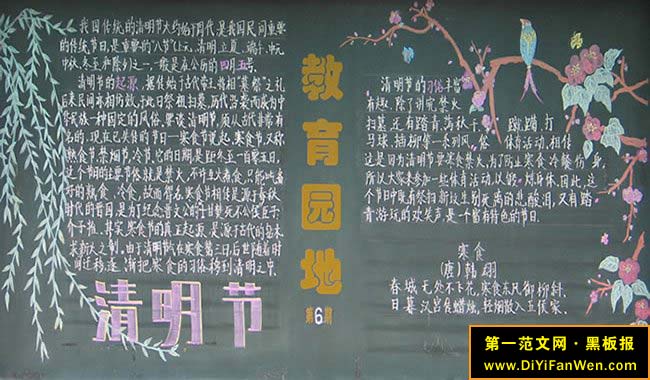 我国传统的清明节大约始于周代,是我国民间重要
的传统节日,是重要的"八节"(上元、清明、立夏、端午、中元
中秋、冬至和除夕)之一,一般是在公历的四月五号,
清明节的起源,据传始于古代帝王将相"墓祭"之礼
后来民间亦相仿效,于此日祭祖扫墓,历代沿袭而成为中
华民族一种固定的风俗。要谈清明节,须从古代非常有
名的,现在已失传的节日—寒食节说起,寒食节,又称
熟食节、禁烟节、冷节,它的日期,是距冬至一百零五日,
这个节的主要节俗就是禁火,不许生火煮食,只能吃备
好的熟食、冷食,故而得名,寒食节相传是源于春秋
时代的晋国,是为了纪念晋文公的
介子推,其实寒食节的真正起源,是源于古代的钻木
求新火之制,由于清明节在寒食第三日,后世随着时
间迁移,逐渐把寒食的习俗移到清明之中。
清明节
教育园地
第6期
清明节的习俗丰富
有趣,除了讲究禁火
扫墓,还有踏青、荡秋千、蹴鞠、打
马球、插柳等一系列风俗体育活动,相传
这是因为清明节要寒食禁火,为了防止寒食冷餐伤身,
所以大家来参加一些体育活动,以锻炼身体。因此,这
个节日中既有祭扫新坟生别死离的悲酸泪,又有踏
青游玩的欢笑声,是一个富有特色的节日。
寒食
(唐)韩翃
春城无处不飞花,寒食东风御柳斜.
日暮汉宫传蜡烛,轻烟散入五侯家.
第一范文网·黑板报
www.DiYiFanWen.com